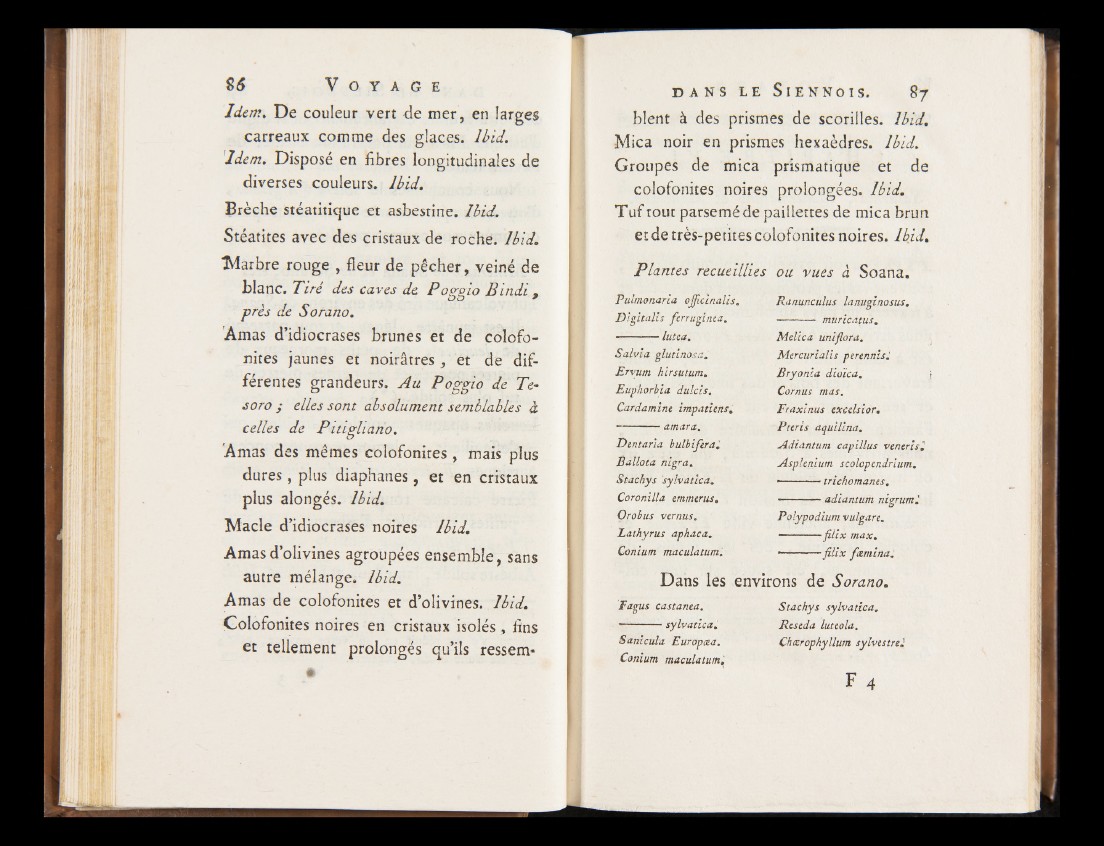 86 VOYAGE
Idem. De couleur vert de mer, en larges
carreaux comme des glaces. Ibid.
Idem. Disposé en fibres longitudinales de
diverses couleurs. Ibid.
Brèche stéatitique et asbestine. Ibid.
Stéatites avec des cristaux de roche. Ibid.
Marbre rouge, fleur de pêcher, veiné de
blanc. Tiré des caves de Poggio Bindi,
près de Sorano.
Amas d'idiocrases brunes et de colofo-
nites jaunes et noirâtres, et de dif-
férentes grandeurs. Au Poggio de Te-
soro ; elles sont absolument semblables à
celles de Pitigliano.
Amas des mêmes colofonites, mais plus
dures, plus diaphanes, et en cristaux
plus alongés. Ibid.
Macle d'idiocrases noires Ibid.
Amas d'olivines agroupées ensemble, sans
autre mélange. Ibid.
Amas de colofonites et d'olivines. Ibid.
Colofonites noires en cristaux isolés, fins
et tellement prolongés qu'ils ressem-
DANS LE SIENNOIS. 87
blent à des prismes de scorilles. Ibid.
Mica noir en prismes hexaèdres. Ibid.
Groupes de mica prismatique et de
colofonites noires prolongées. Ibid.
Tuf tout parsemé de paillettes de mica brun
et de très-petites colofonites noires. Ibid.
Plantes recueillies ou vues à Soana.
Pulmonaria officinalis.
Digitalis ferruginea.
——— lutea.
Salvia glutinosa.
Ervum hirsutum.
Euphorbia dulcis.
Cardamine impatiens.
——— amara.
Dentaria bulbifera.
Ballota nigra.
Stachys sylvatica.
Coronilla emmerus.
Orobus vernus.
Lathyrus aphaca.
Conium maculatum.
Ranunculus lanuginosus.
——— muricatus.
Melica uniflora.
Mercurialis perennis.
Bryonia dioïca.
Cornus mas.
Fraxinus excelsior.
Pteris aquilina.
Adiantum capillus veneris.
Asplenium scolopendrium.
——— trichomanes.
——— adiantum nigrum.
Polypodium vulgare.
——— filix max.
——— filix fœmina.
Dans les environs de Sorano.
Fagus castanea.
——— sylvatica.
Sanicula Europæa.
Conium maculatum.
Stachys sylvatica.
Reseda luteola.
Chærophyllum sylvestre.
F 4